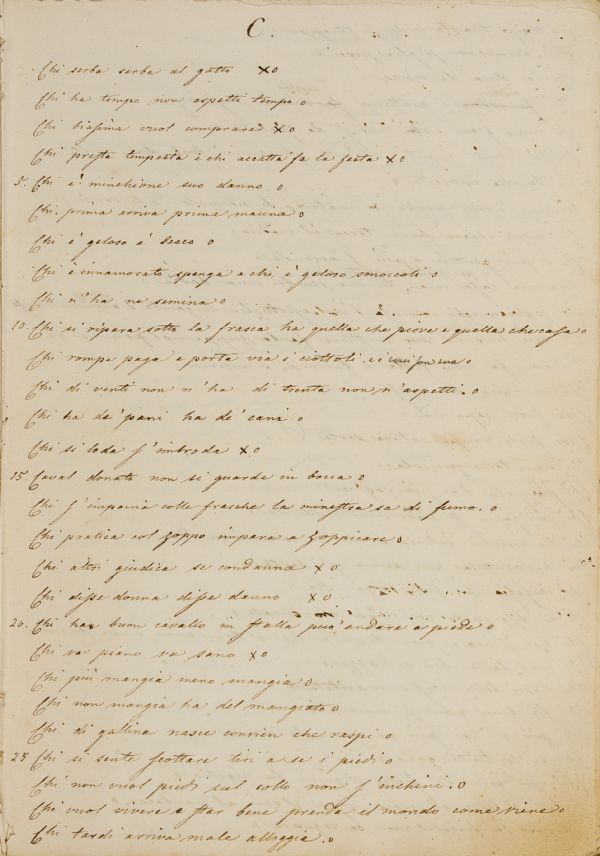 C.
Chi serba serba al gatto xo
Chi ha tempo non aspetti tempo o
Chi biasima vuol comprare xo
Chi presta tempesta e chi accatta fa la festa xo
5. Chi e' minchione suo danno o
Chi prima arriva prima macina o
Chi è geloso é becco o
Chi è innamorato spenga e chi è geloso smoccoli o
Chi n'ha ne semina o
10. Chi si ripara sotto la frasca ha quella che piove e quella che casca o
Chi rompe paga e porta via i ciottoli o
Chi di venti non n'ha di trenta non n'aspetti. o
Chi ha de' pani ha de' cani o
Chi si loda s'imbroda xo
15. Caval donato non si guarda in bocca o
Chi s'impaccia colle frasche la minestra sa di fumo. o
Chi pratica col zoppo impara a zoppicare o
Chi altri giudica se condanna xo
Chi disse donna disse danno xo
20. Chi ha buon cavallo in stalla puo' andare a piede o
Chi va piano va sano xo
Chi più mangia meno mangia o
Chi non mangia ha del mangiato o
Chi di gallina nasce convien che raspi o
25 Chi si sente scottare tiri a se i piedi o
Chi non vuol piedi sul collo non s'inchini. o
Chi vuol vivere e star bene prenda il mondo come viene o
Chi tardi arriva male alloggia. o